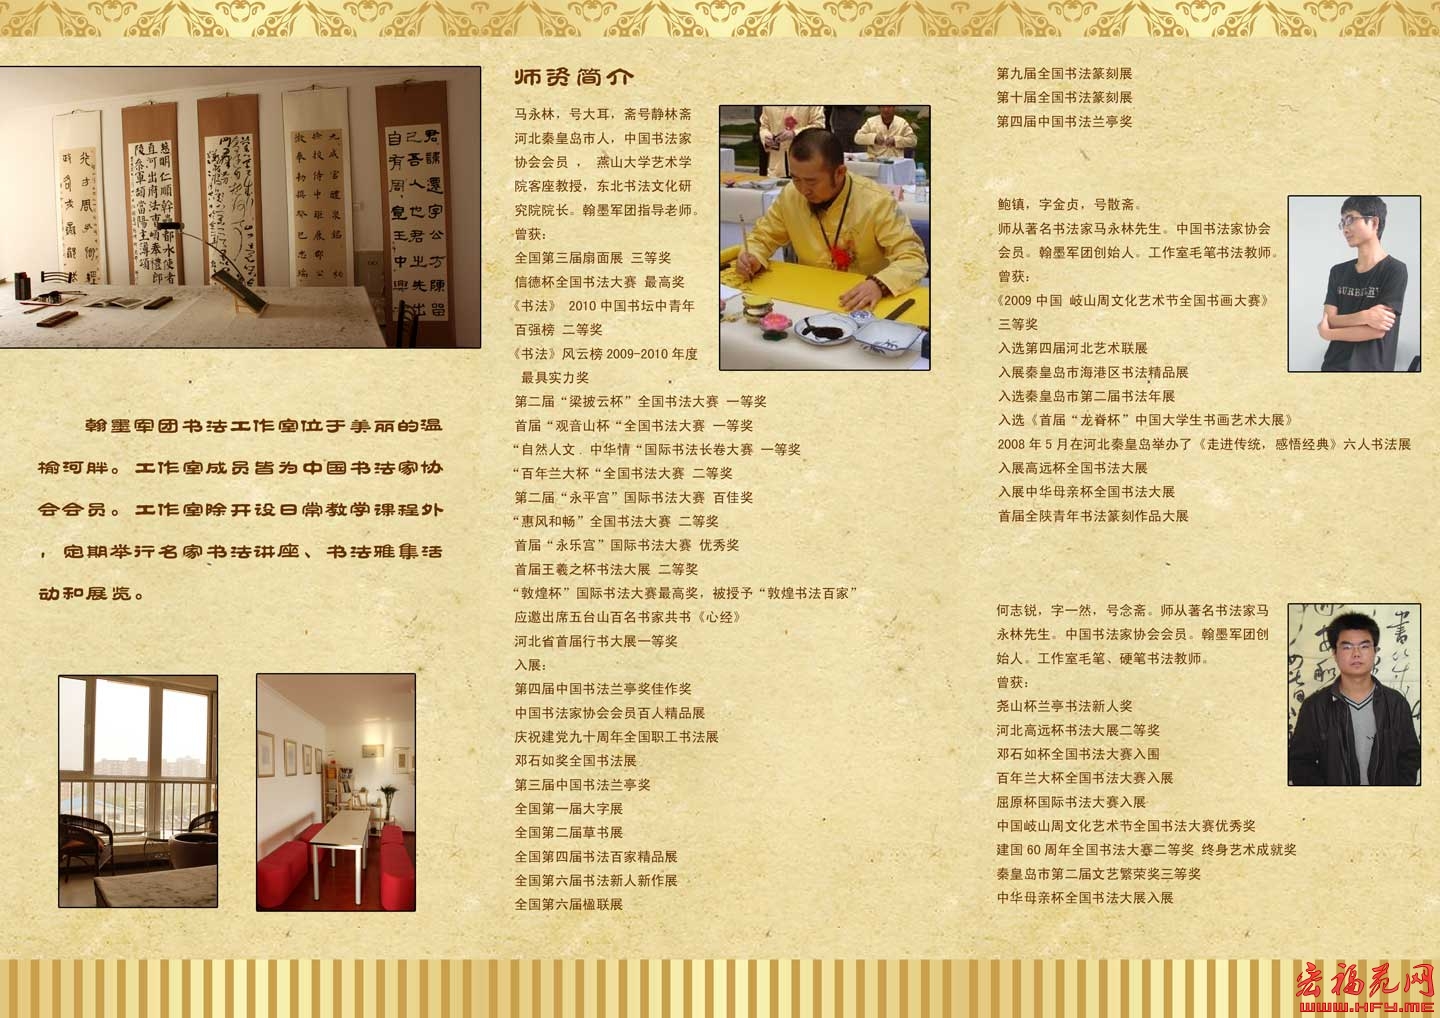 翰墨军团书法工作室位于美丽的温
榆河畔。工作室成员皆为中国书法家协
会会员。工作室除开设日常教学课程外
，定期举行名家书法讲座、书法雅集活
动和展览。
师资简介
马永林，号大耳，斋号静林斋
河北秦皇岛市人，中国书法家
协会会员 ， 燕山大学艺术学
院客座教授，东北书法文化研
究院院长。翰墨军团指导老师。
曾获：
全国第三届扇面展 三等奖
信德杯全国书法大赛 最高奖
《书法》 2010 中国书坛中青年
百强榜 二等奖
《书法》风云榜 2009-2010 年度
最具实力奖
第二届“梁披云杯”全国书法大赛 一等奖
首届“观音山杯“全国书法大赛 一等奖
“自然人文．中华情“国际书法长卷大赛 一等奖
“百年兰大杯“全国书法大赛 二等奖
第二届“永平宫”国际书法大赛 百佳奖
“惠风和畅”全国书法大赛 二等奖
首届“永乐宫”国际书法大赛 优秀奖
首届王羲之杯书法大展 二等奖
“敦煌杯”国际书法大赛最高奖，被授予“敦煌书法百家”
应邀出席五台山百名书家共书《心经》
河北省首届行书大展一等奖
入展：
第四届中国书法兰亭奖佳作奖
中国书法家协会会员百人精品展
庆祝建党九十周年全国职工书法展
邓石如奖全国书法展
第三届中国书法兰亭奖
全国第一届大字展
全国第二届草书展
全国第四届书法百家精品展
全国第六届书法新人新作展
全国第六届楹联展
第九届全国书法篆刻展
第十届全国书法篆刻展
第四届中国书法兰亭奖
鲍镇，字金贞，号散斋。
师从著名书法家马永林先生。中国书法家协会
会员。翰墨军团创始人。工作室毛笔书法教师。
曾获：
《2009 中国 岐山周文化艺术节全国书画大赛》
三等奖
入选第四届河北艺术联展
入展秦皇岛市海港区书法精品展
入选秦皇岛市第二届书法年展
入选《首届“龙脊杯”中国大学生书画艺术大展》
2008 年 5 月在河北秦皇岛举办了《走进传统，感悟经典》六人书法展
入展高远杯全国书法大展
入展中华母亲杯全国书法大展
首届全陕青年书法篆刻作品大展
何志锐，字一然，号念斋。师从著名书法家马
永林先生。中国书法家协会会员。翰墨军团创
始人。工作室毛笔、硬笔书法教师。
曾获：
尧山杯兰亭书法新人奖
河北高远杯书法大展二等奖
邓石如杯全国书法大赛入围
百年兰大杯全国书法大赛入展
屈原杯国际书法大赛入展
中国岐山周文化艺术节全国书法大赛优秀奖
建国 60 周年全国书法大赛二等奖 终身艺术成就奖
秦皇岛市第二届文艺繁荣奖三等奖
中华母亲杯全国书法大展入展
宏福苑网
WWW.HFY.ME